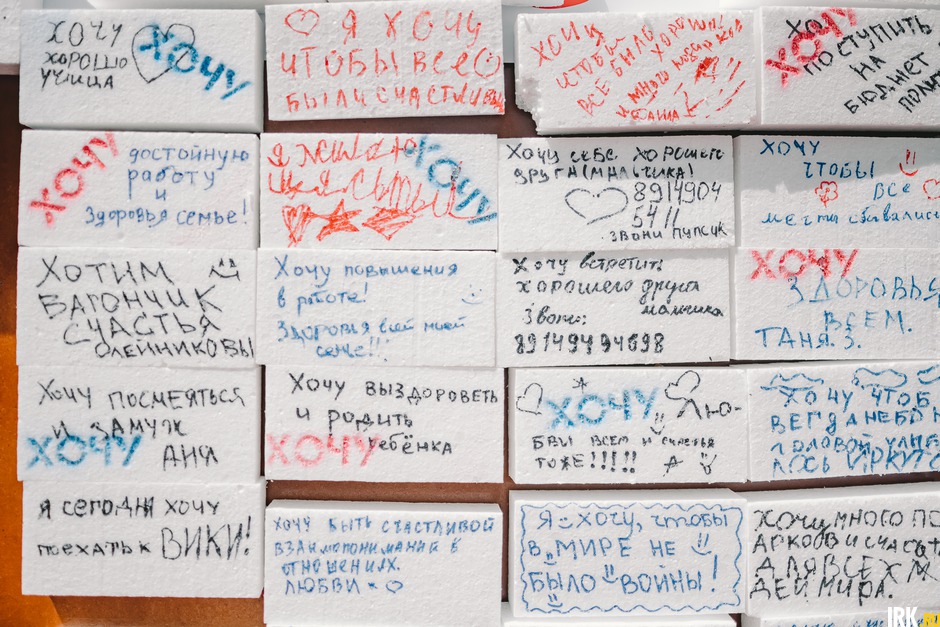 ХОЧУ
ХОРОШО
УЧИЦА
ХОЧУ
Я ХОЧУ
ЧТОБЫ ВСЕ
БЫЛИ СЧАСТЛИВЫ
ЧТОБЫ
ВСЁ БЫЛО ХОРОШО!
И МНОГО
ХОЧУ
ПОСТУПИТЬ
НА
БЮДЖЕТ В
ХОЧУ
достойную
работу
и
Здоровья семье!
Я
ХОЧУ
Хочу себе хорошего
друга(мальчика)
8914904
54//
звони пупсик
ХОЧУ
ЧТОБЫ
ВСЕ
мечты сбывались
ХОТИМ
ВАГОНЧИК
СЧАСТЬЯ
ОЛЕЙНИКОВЫ
Хочу повышения
в работе!
Здоровья всей моей
семье!!!
Хочу встретить
хорошего друга
мальчика
Звони:
89149494698
ХОЧУ
ЗДОРОВЬЯ
ВСЕМ.
ТАНЯ. З.
Хочу ПОСМЕЯТЬСЯ
И ЗАМУЖ
ХОЧУ АНЯ
Хочу ВЫЗДОРОВЕТЬ
и родить
ХОЧУ ребёнка
ХОЧУ Лю-
БВИ ВСЕМ И счастья
ТОЖЕ!!!!!
ХОЧУ ЧТОБ
Я СЕГОДНЯ ХОЧУ
поехать к ВИКИ!
ХОЧУ БЫТЬ СЧАСТЛИВОЙ
ВЗАИМОПОНИМАНИЯ В
ОТНОШЕНИЯХ.
ЛЮБВИ
Я ХОЧУ, чтобы
В МИРЕ НЕ
БЫЛО ВОЙНЫ!
ХОЧУ МНОГО ПО
ДАРКОВ И СЧАСТЬ
Я ДЛЯ ВСЕХ
ДЕЙ МИРА.
IRK.RU